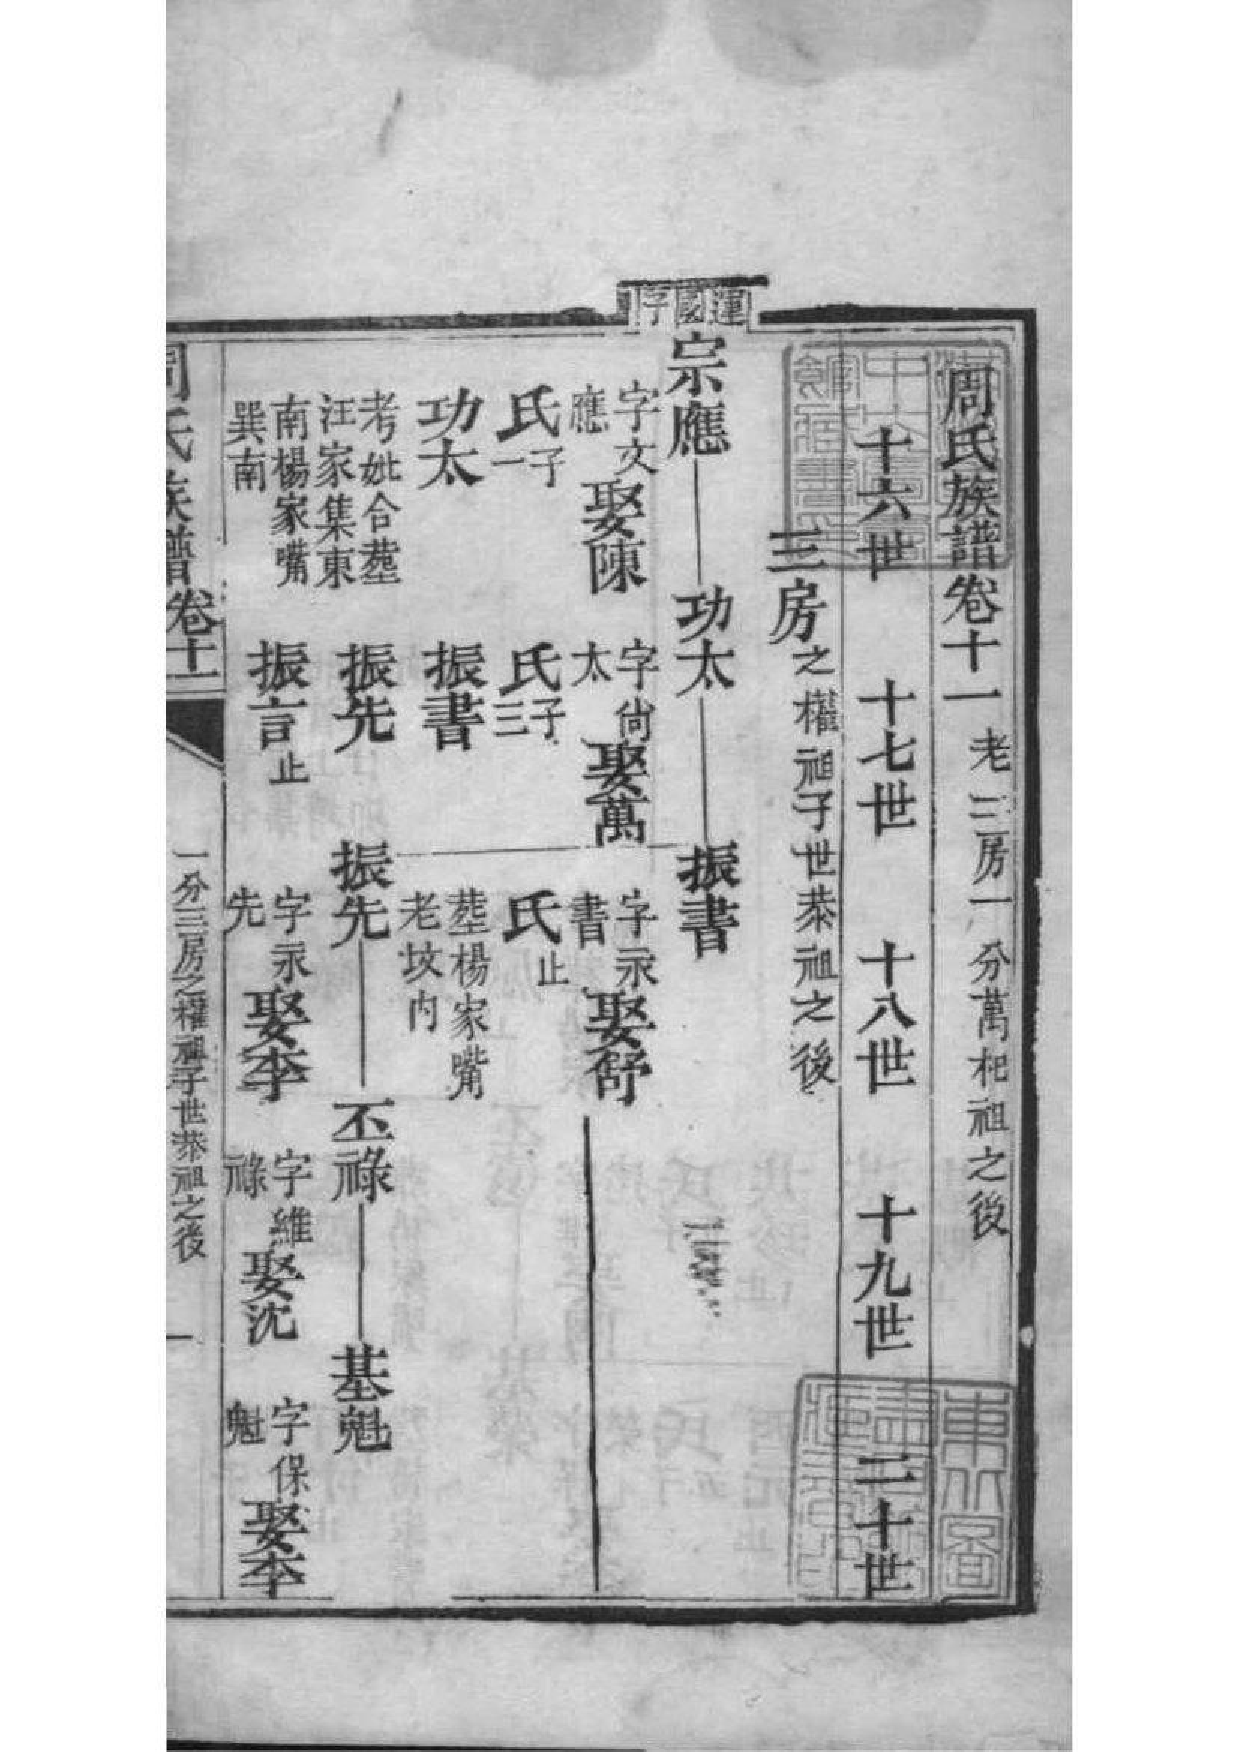 周氏族譜卷十一 老三房一分萬杞祖之後
十六世 十七世 十八世 十九世 二十世
三房之權祖子世恭祖之後
運國字
宗應 功太 振書
字文應娶陳 字尙太娶萬 字永書娶舒
氏子一 氏子三 氏止
功太 振書 葬楊家嘴老坟内
考妣合葬汪家集東南楊家嘴巽南
振先 振先 丕祿 基魁
振言止 字永先娶李 字維祿娶沈 字保魁娶李
周氏族譜 卷十一 一分三房之權祖子世恭祖之後 一